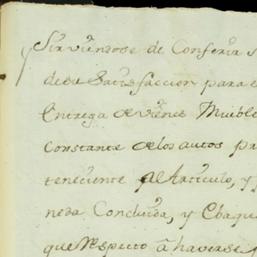 y sirviendose de Conferir s
de su Satisfaccion para e
Entrega de vienes Mueble
constante de los autos pa
teneciente al Articulo, y
neda Concluida, y Evaqu
que respecto â haverse